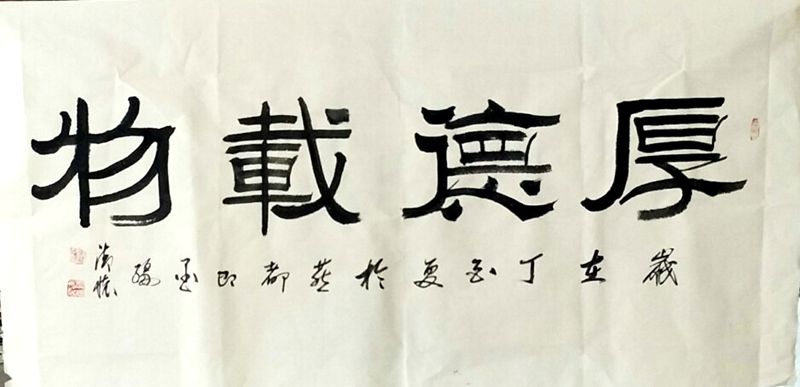 厚德載物
歲在丁酉夏於燕都郎墨緣